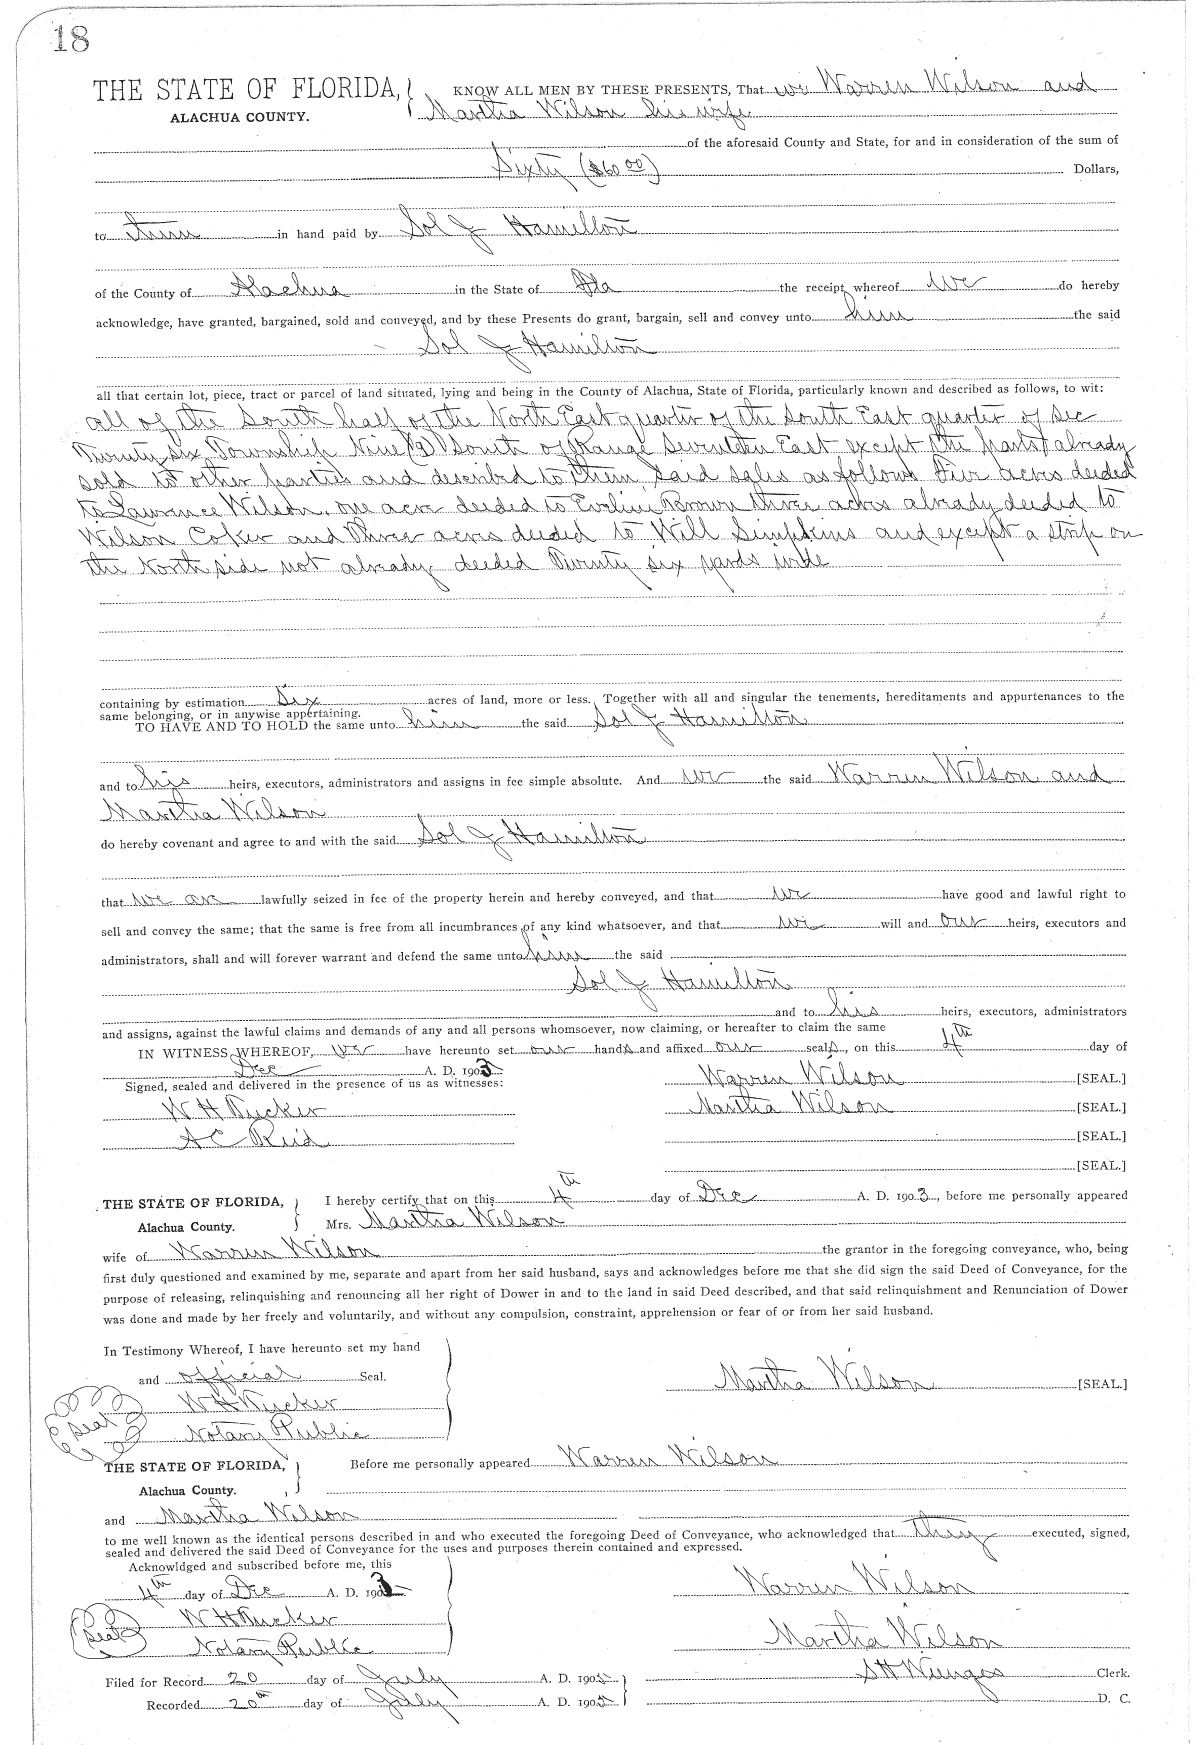 18
THE STATE OF FLORIDA, KNOW ALL MEN BY THESE PRESENTS, That we Warren Wilson and
ALACHUA COUNTY. Martha Wilson his wife
of the aforesaid County and State, for and in consideration of the sum of
Sixty ($60 00) Dollars,
to them in hand paid by Sol J Hamilton
of the County of Alachua in the State of Fla the receipt whereof we do hereby
acknowledge, have granted, bargained, sold and conveyed, and by these Presents do grant, bargain, sell and convey unto him the said
Sol J Hamilton
all that certain lot, piece, tract or parcel of land situated, lying and being in the County of Alachua, State of Florida, particularly known and described as follows, to wit:
all of the South half of the North East quarter of the South East quarter of Sec
Twenty six Township Nine (9) South of Range Seventeen East except the parts already
sold to other parties and described to them said sales as follows Five acres deeded
to Lawrance Wilson, one acre deeded to Evline Brown three acres already deeded to
Wilson Coker and Three acres deeded to Will Simpkins and except a strip on
the North side not already deeded Twenty six yards wide
containing by estimation Six acres of land, more or less. Together with all and singular the tenements, hereditaments and appurtenances to the
same belonging, or in anywise appertaining.
TO HAVE AND TO HOLD the same unto him the said Sol J Hamilton
and to his heirs, executors, administrators and assigns in fee simple absolute. And we the said Warren Wilson and
Martha Wilson
do hereby covenant and agree to and with the said Sol J Hamilton
that we are lawfully seized in fee of the property herein and hereby conveyed, and that we have good and lawful right to
sell and convey the same; that the same is free from all incumbrances of any kind whatsoever, and that we will and our heirs, executors and
administrators, shall and will forever warrant and defend the same unto him the said
Sol J Hamilton
and to his heirs, executors, administrators
and assigns, against the lawful claims and demands of any and all persons whomsoever, now claiming, or hereafter to claim the same
IN WITNESS WHEREOF, we have hereunto set our hands and affixed our seals, on this 4th day of
Dec A. D. 1903
Signed, sealed and delivered in the presence of us as witnesses: Warren Wilson [SEAL.]
W H Tucker Martha Wilson [SEAL.]
A C Reid [SEAL.]
[SEAL.]
THE STATE OF FLORIDA, I hereby certify that on this 4th day of Dec A. D. 1903, before me personally appeared
Alachua County. Mrs. Martha Wilson
wife of Warren Wilson the grantor in the foregoing conveyance, who, being
first duly questioned and examined by me, separate and apart from her said husband, says and acknowledges before me that she did sign the said Deed of Conveyance, for the
purpose of releasing, relinquishing and renouncing all her right of Dower in and to the land in said Deed described, and that said relinquishment and Renunciation of Dower
was done and made by her freely and voluntarily, and without any compulsion, constraint, apprehension or fear of or from her said husband.
In Testimony Whereof, I have hereunto set my hand
and official Seal. Martha Wilson [SEAL.]
W H Tucker
Seal Notary Public
THE STATE OF FLORIDA, Before me personally appeared Warren Wilson
Alachua County.
and Martha Wilson
to me well known as the identical persons described in and who executed the foregoing Deed of Conveyance, who acknowledged that they executed, signed,
sealed and delivered the said Deed of Conveyance for the uses and purposes therein contained and expressed.
Acknowldged and subscribed before me, this
4th day of Dec A. D. 1903 Warren Wilson
W H Tucker
Seal Notary Public Martha Wilson
Filed for Record 20 day of July A. D. 1905 S H Wienges Clerk.
Recorded 20th day of July A. D. 1905 D. C.